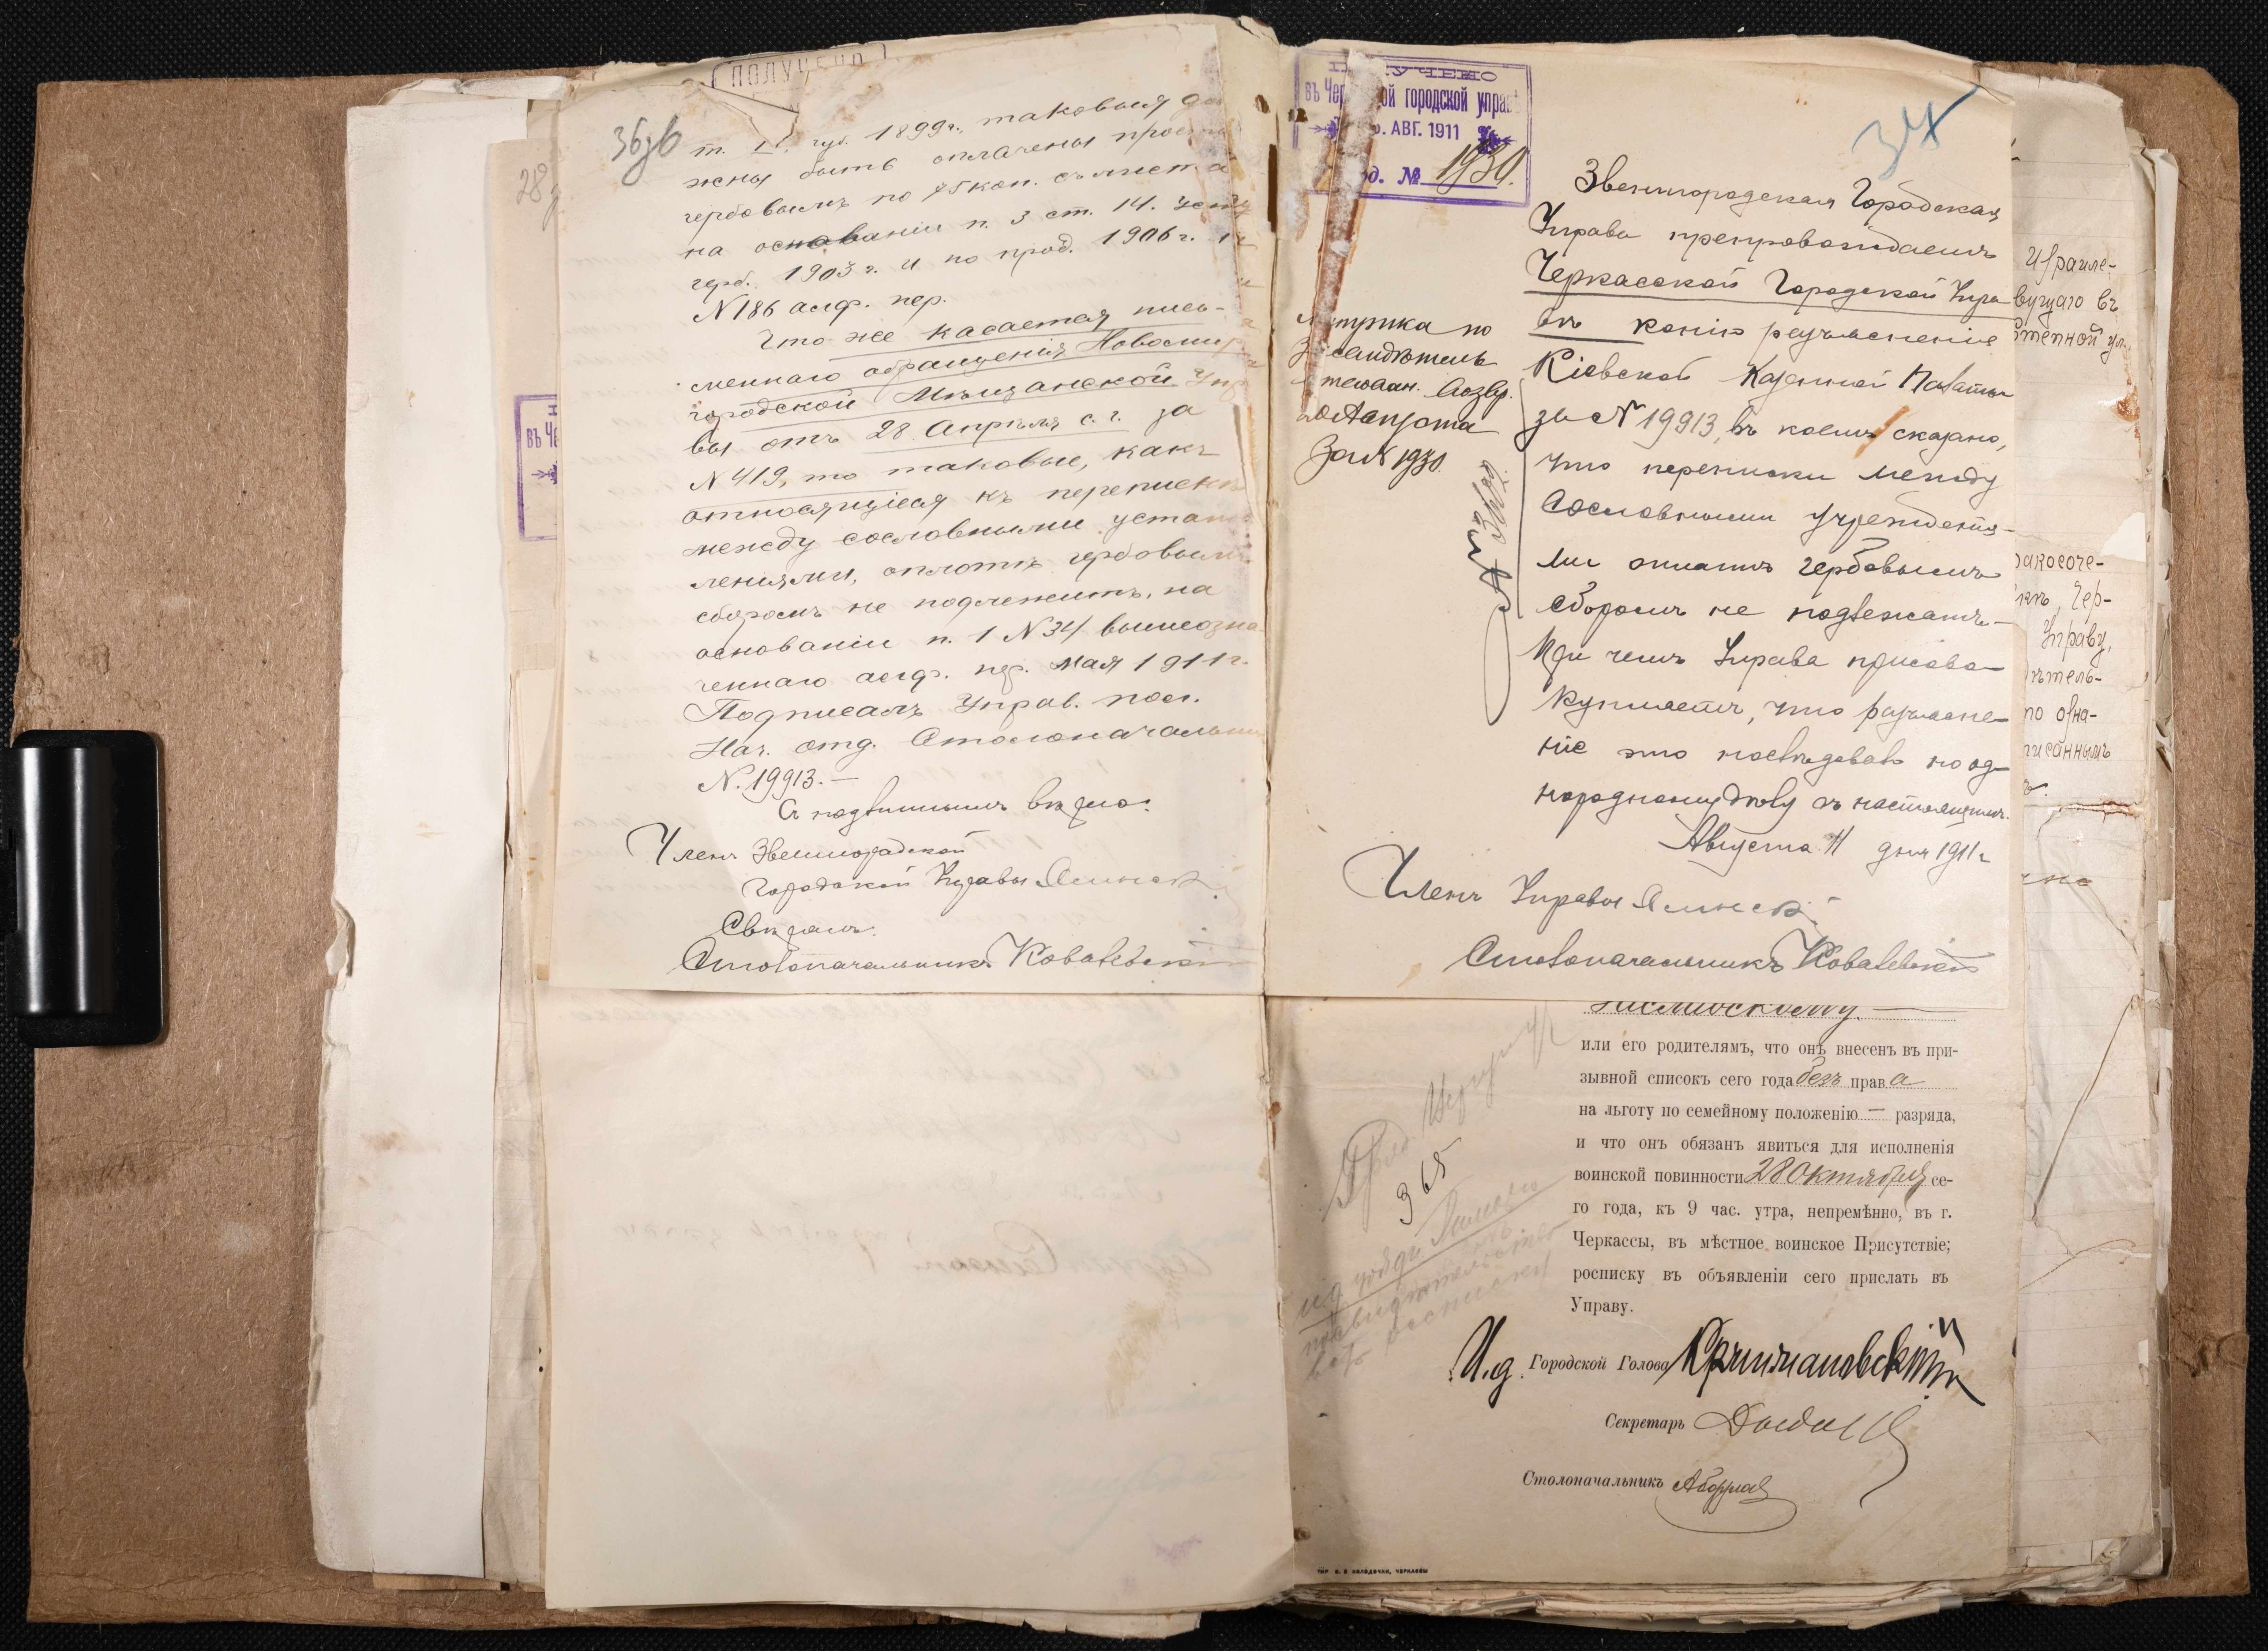 ПОЛУЧЕНО
36зв
1899 г., таковыя дол
жны быть оплачены прост
гербовымъ по 75 коп. съ листа
на основаніи п. 3 ст. 14. Уст.
герб. 1903 г. и по прод. 1906 г. и
N 186 алф. пер.
Что же касается пись-
меннаго обращенія Новомир
городской Мѣщанской Упр
вы отъ 28 Апрѣля с. г. за
N 419, то таковые, какъ
относящіеся къ перепискѣ
между сословными устано
леніями, оплотѣ гербовымъ
сборомъ не подлежитъ, на
основаніи п. 1 N 34 вышеозна
ченнаго алф. пер. Мая 1911 г.
Подписалъ Управ. пал.
Нач. отд. Столоначальник
N. 19913. —
Съ подлиннымъ вѣрно:
Членъ Звенигородской
Городской Управы
Свѣрялъ:
Столоначальникъ Ковалевскій
28
въ Че
ПОЛУЧЕНО
въ Чер ой городской управ
АВГ. 1911
д. № 1930.
34
Звенигородская Городская
Управа препровождаетъ
Черкасской Городской Упра
въ копію разъясненіе
Кіевской Казенной Палаты
за N 19913, въ коемъ сказано,
что переписки между
Сословными учрежденія-
ми оплатѣ гербовымъ
сборомъ не подлежатъ.—
При чемъ Управа присово-
купляетъ, что разъясне-
ніе это послѣдовало по од-
нородному дѣлу съ настоящимъ.
Августа 11 дня 1911 г.
Членъ Управы
Столоначальникъ Ковалевскій
по
Августа
За N 1930.
Израиле-
вущаго въ
тепной ул.
ракосоче-
Чер-
Управу,
ѣтель-
по озна-
писаннымъ
или его родителямъ, что онъ внесенъ въ при-
зывной списокъ сего года безъ права
на льготу по семейному положенію — разряда,
и что онъ обязанъ явиться для исполненія
воинской повинности 28 Октября се-
го года, къ 9 час. утра, непремѣнно, въ г.
Черкассы, въ мѣстное воинское Присутствіе;
росписку въ объявленіи сего прислать въ
Управу.
И.д. Городской Голова
Секретарь
Столоначальникъ
365